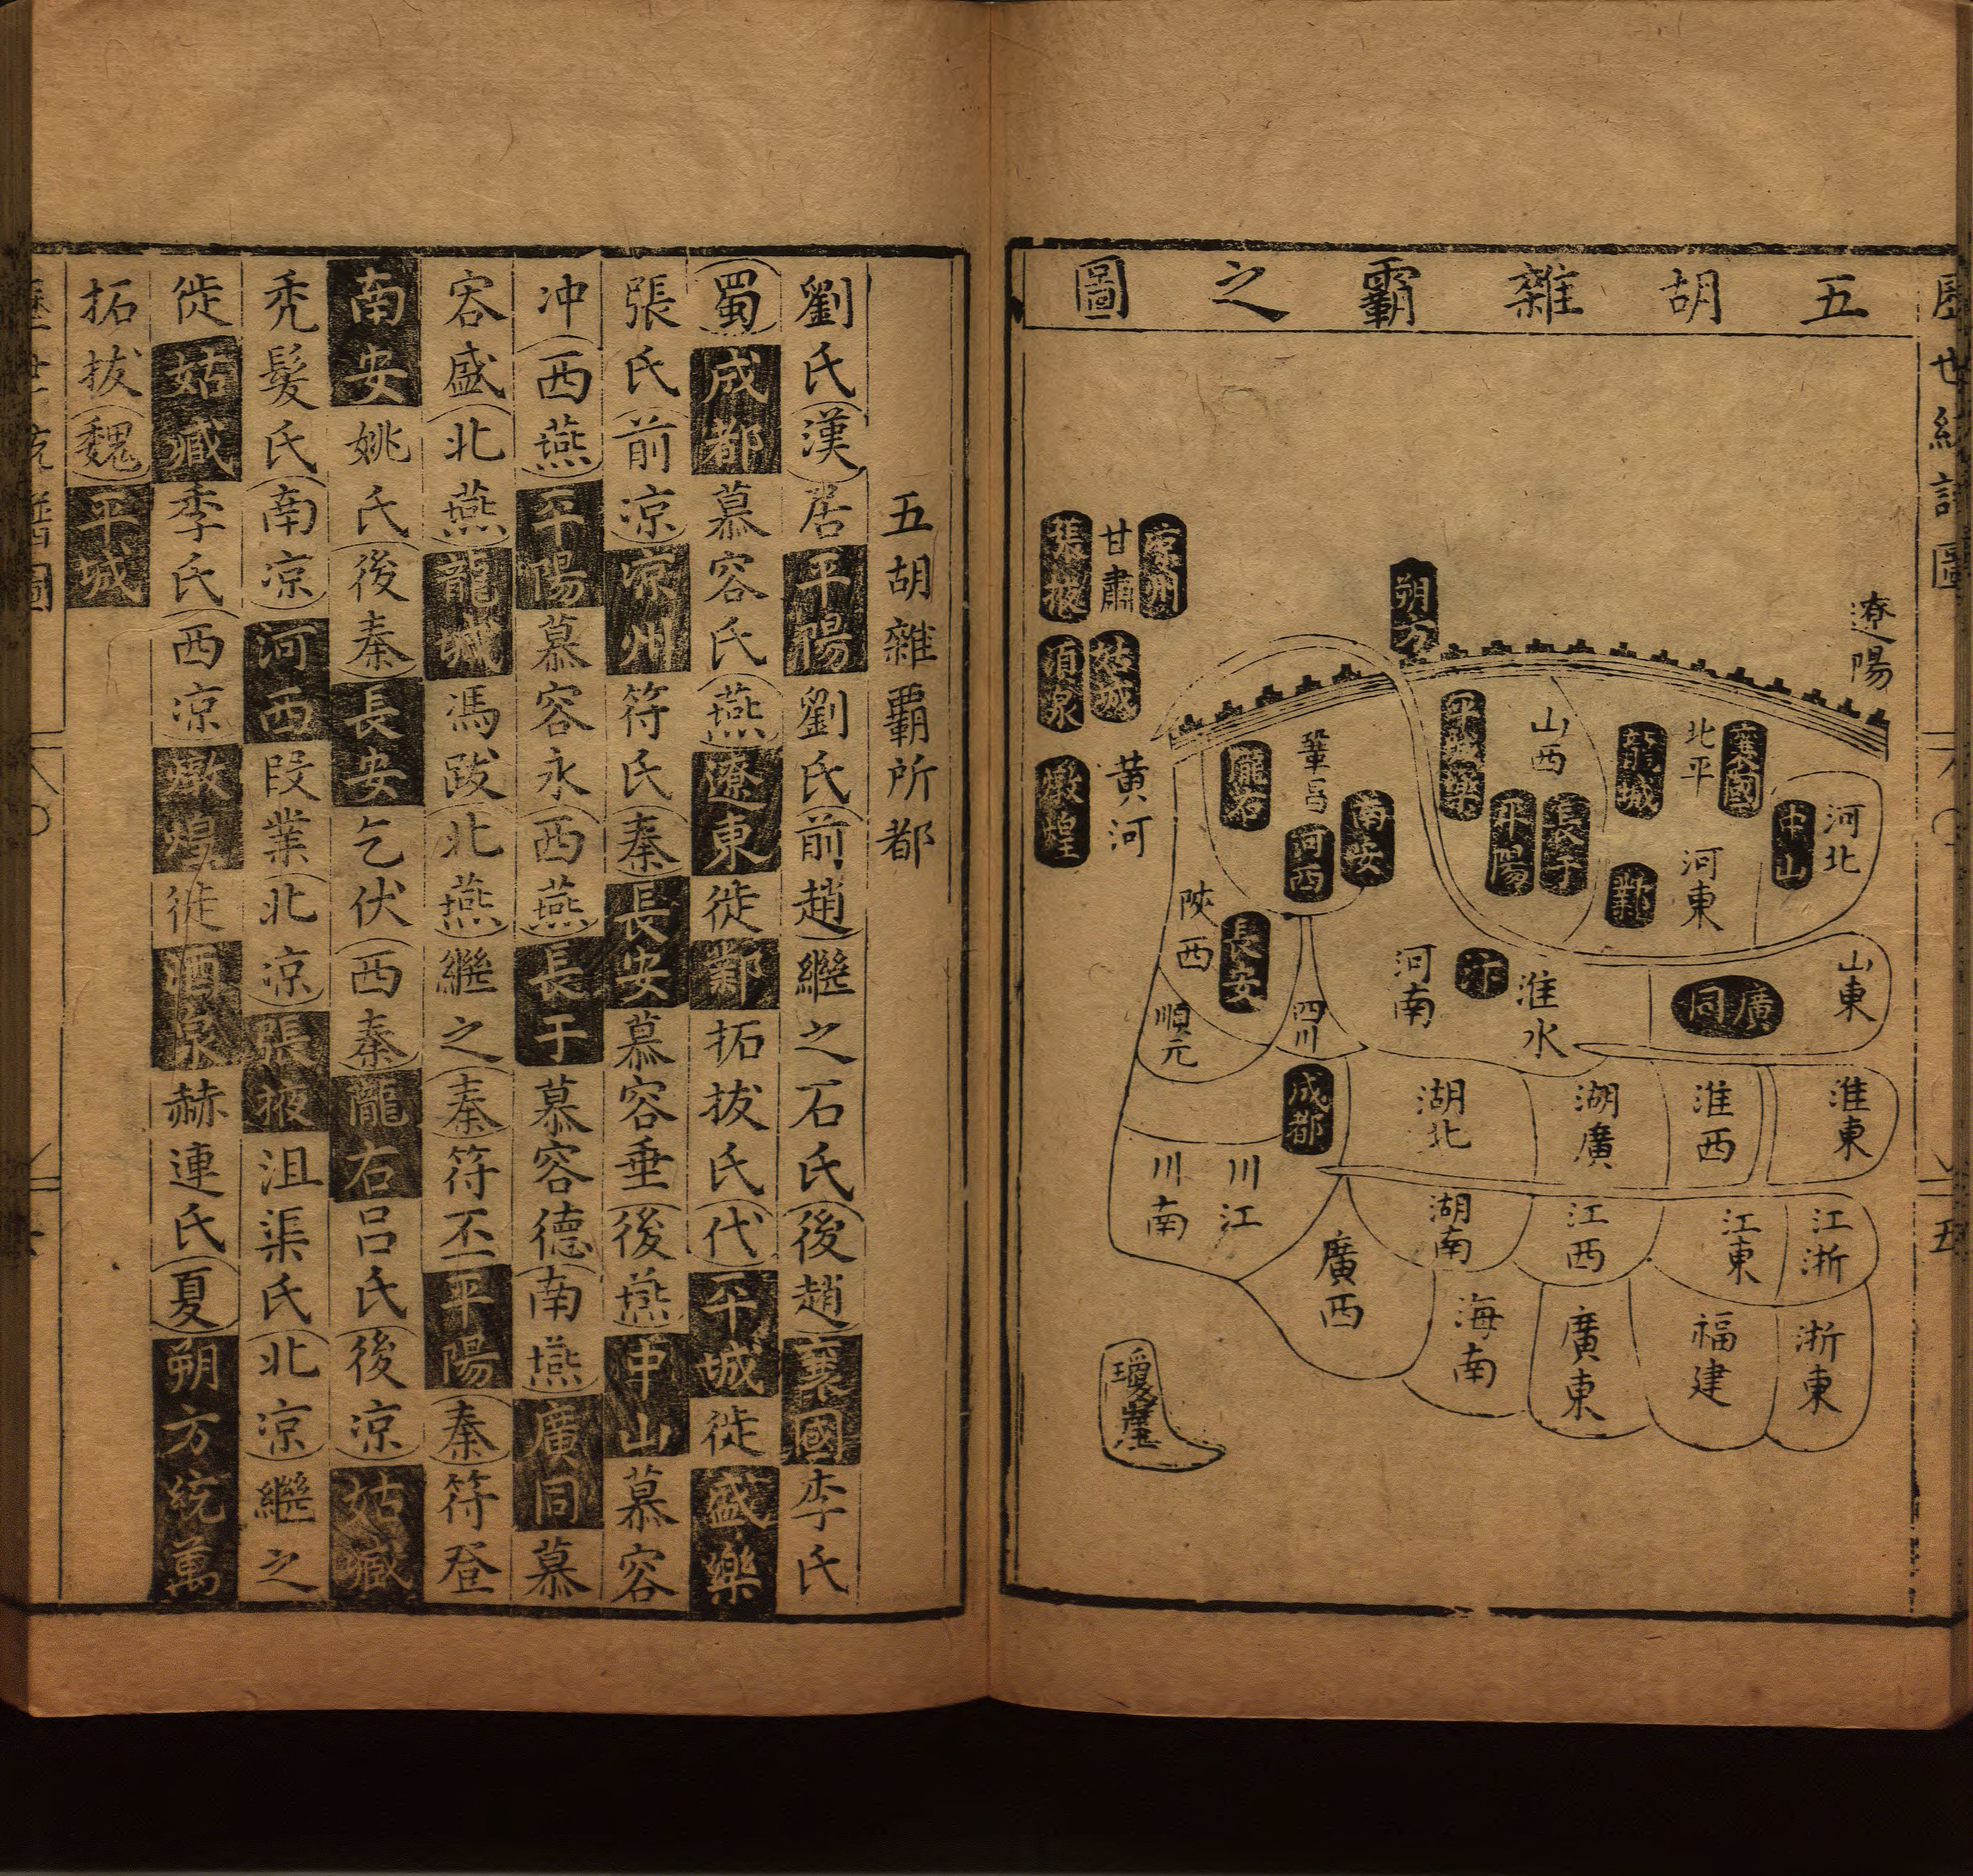 五胡雜霸之圖
遼陽
河北
中山
襄國
北平
龍城
河東
鄴
山西
長子
平陽
朔方
鞏昌
南安
河西
隴右
涼州
甘肅
張掖
姑城
燉煌
黄河
陝西
長安
順元
四川
河南
汴
淮水
廣同
山東
淮東
淮西
湖廣
湖北
成都
川江
川南
江浙
江東
江西
湖南
廣西
浙東
福建
廣東
海南
瓊崖
五胡雜覇所都
劉氏漢居平陽劉氏前趙繼之石氏後趙襄國李氏
蜀成都慕容氏燕遼東徙鄴拓拔氏代平城徙盛樂
張氏前涼涼州符氏秦長安慕容垂後燕中山慕容
冲西燕平陽慕容永西燕長子慕容德南燕廣同慕
容盛北燕龍城馮跋北燕繼之秦符丕平陽秦符登
南安姚氏後秦長安乞伏西秦隴右吕氏後涼姑臧
秃髮氏南凉河西段業北凉張掖沮渠氏北凉繼之
徙姑臧李氏西凉燉煌徙酒泉赫連氏夏朔方統萬
拓拔魏平城